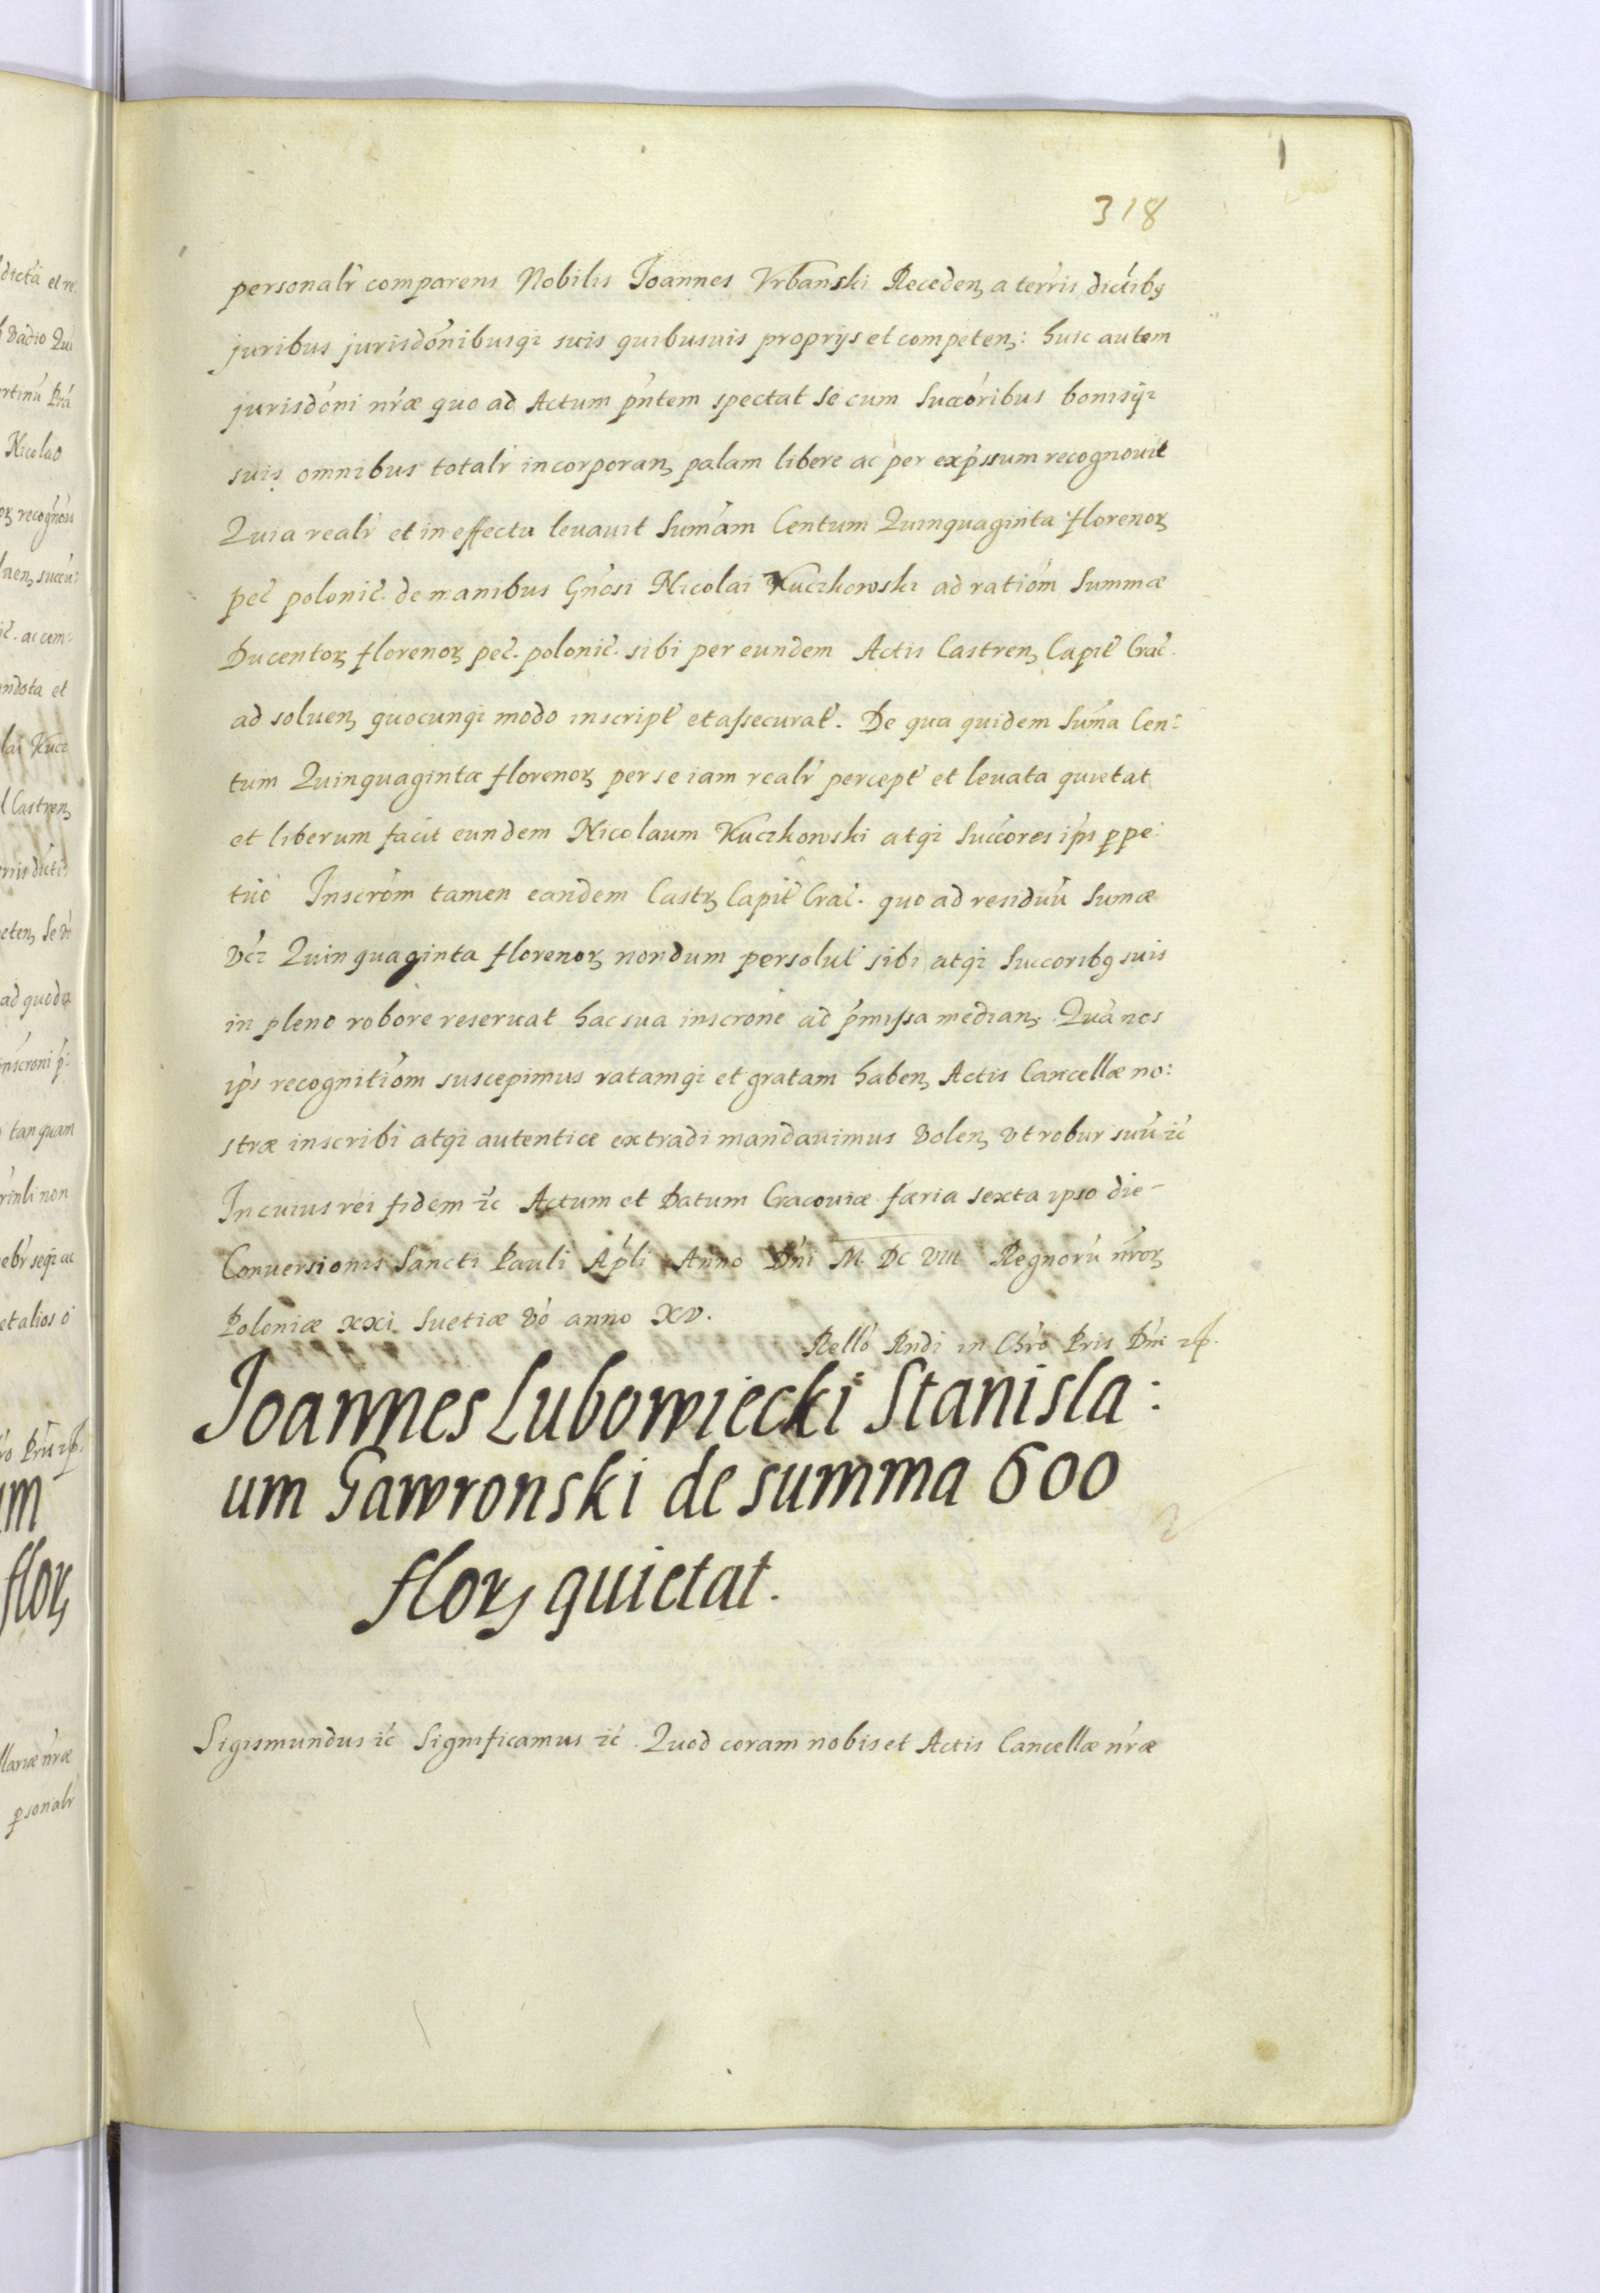 318
personalr comparens Nobilis Joannes Vrbanski Receden, a terris dictibq
juribus jurisdonibusqz suis quibusuis proprijs et competen: huic autem
jurisdoni nræ quo ad Actum pntem spectat se cum Succoribus bonisqz
suis omnibus totalr incorporan palam libere ac per expssum recognouit
Quia realr et in effectu leuauit Sumam Centum Quinquaginta florenor
pec polonic. de manibus Gnosi Nicolai Kuczkowski ad rationm Summæ
Ducentor florenor pec. polonic. sibi per eundem Actis Castren Capit Crac.
ad soluen quocunqz modo inscript et assecurat. De qua quidem Suma Cen:
tum Quinquaginta florenor per se iam realr percept et leuata quietat
et liberum facit eundem Nicolaum Kuczkowski atqz Succores ipi ppe:
tuo Inscrom tamen eandem Castr Capit Crac. quo ad residuu Sumæ
vcz Quinquaginta florenor nondum persolut sibi atqz Succoribq suis
in pleno robore reseruat hac sua inscrone ad pmissa median. Qua nos
ips recognitiom suscepimus ratamqz et gratam haben Actis Cancellæ no:
stræ inscribi atqz autentice extradi mandauimus volen vt robur suu zc
In cuius rei fidem zc Actum et Datum Cracouiæ færia sexta ipso die
Conuersionis Sancti Pauli Apli Anno Dni M. DC VIII Regnoru nror
Poloniæ XXI Suetiæ vo anno XV.
Rello Rndi in Chro Pris Dni
Joannes Lubowiecki Stanisla:
um Gawronski de summa 600
flor quietat.
Sigismundus zc Significamus zc. Quod coram nobis et Actis Cancellæ nræ